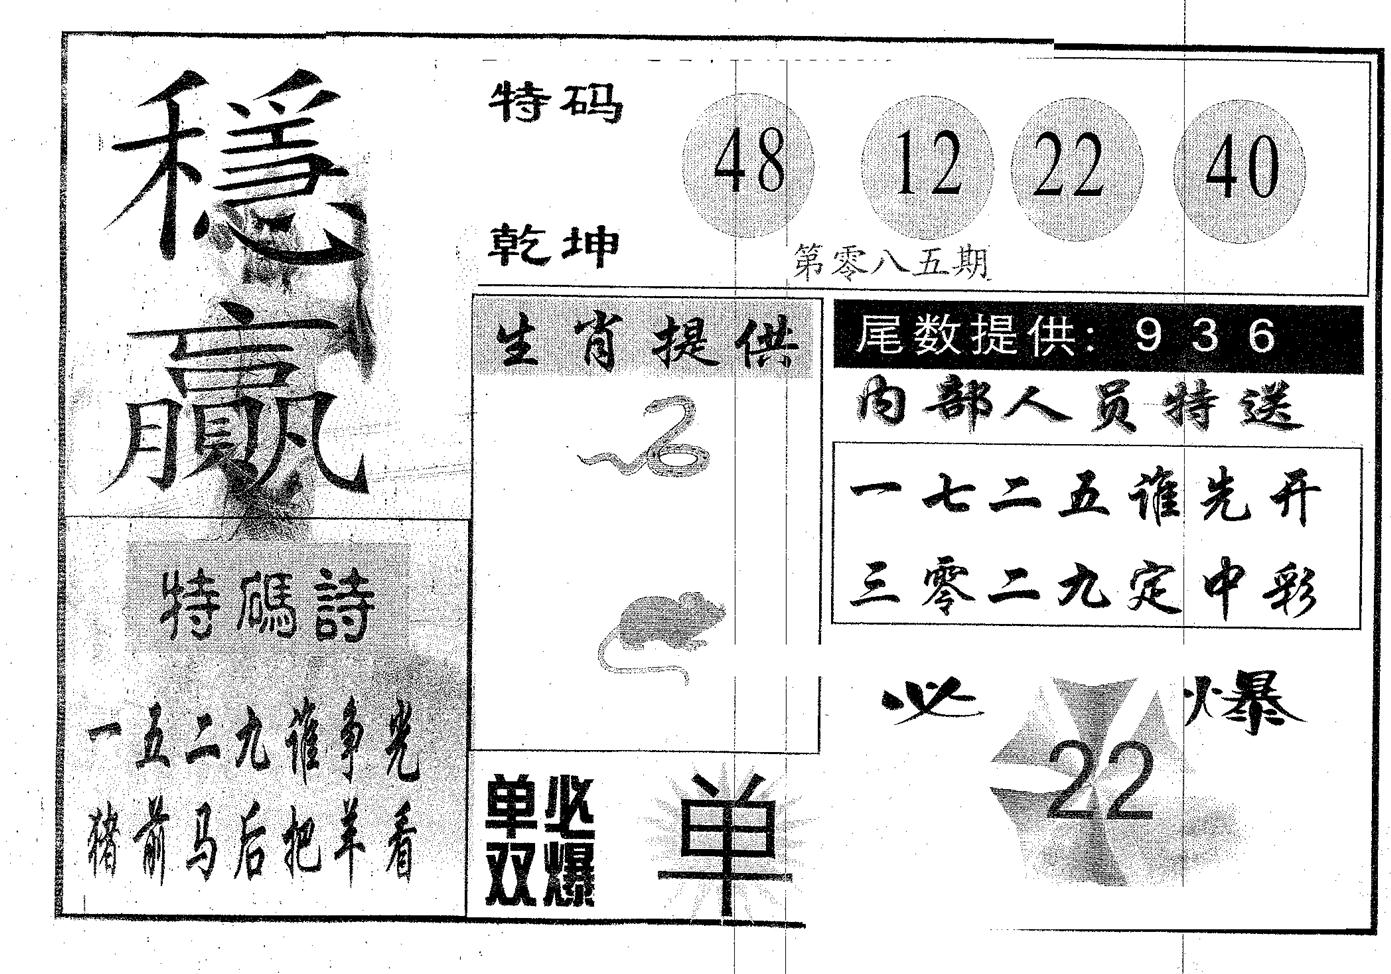 穩
贏
特码
乾坤
48 12 22 40
第零八五期
生肖提供
尾数提供: 9 3 6
内部人员特送
一七二五谁先开
三零二九定中彩
特碼詩
一五二九谁争光
猪前马后把羊看
必爆
22
单必
双爆
单